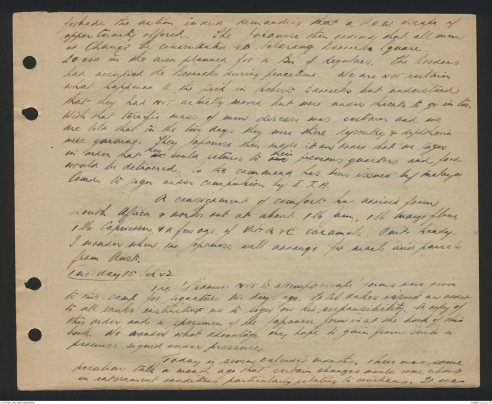 forbade the action indeed demanding that a P.O.W. escape if
opportunity offered. The Japanese then ordered that all men
at Changi be concentrated at Selarang Barracks Square,
20,000 in the area planned for a Bn of Regulars. The Gordons
had occupied the Barracks during peacetime. We are not certain
what happened to the sick in Roberts Barracks but understand
that they had not actually moved but were under threats to go in too.
With that terrific mess of men disease was certain and we
are told that in the two days they were there dysentry & diphtheria
were
in order that could return to their previous quarters and food
would be delivered, the command has been issued by Malaya
Comd. to sign under compulsion by I.J.A.
A consignment of comforts has arrived from
South Africa & works out at about 1 lb jam, 1 lb maize flour
1 lb & a few ozs. of caramels. Quite handy.
I wonder when the Japanese will arrange for mails and parcels
from Aust.
Tuesday 15 Sep 42
The "Promise not to attempt escape" forms were given
to this camp for signature two days ago. Lt Col Oakes issued an order
to all ranks instructing us to sign on his responsibility. A copy of
this order and a specimen of the Japanese form is at the back of this
book. We wonder what advantage they hope to gain from such a
promise signed under pressure.
Today is seven calendar months. There was some
peculiar talk a month ago that certain changes would come about
in internment conditions particularly relating to civilians. It was